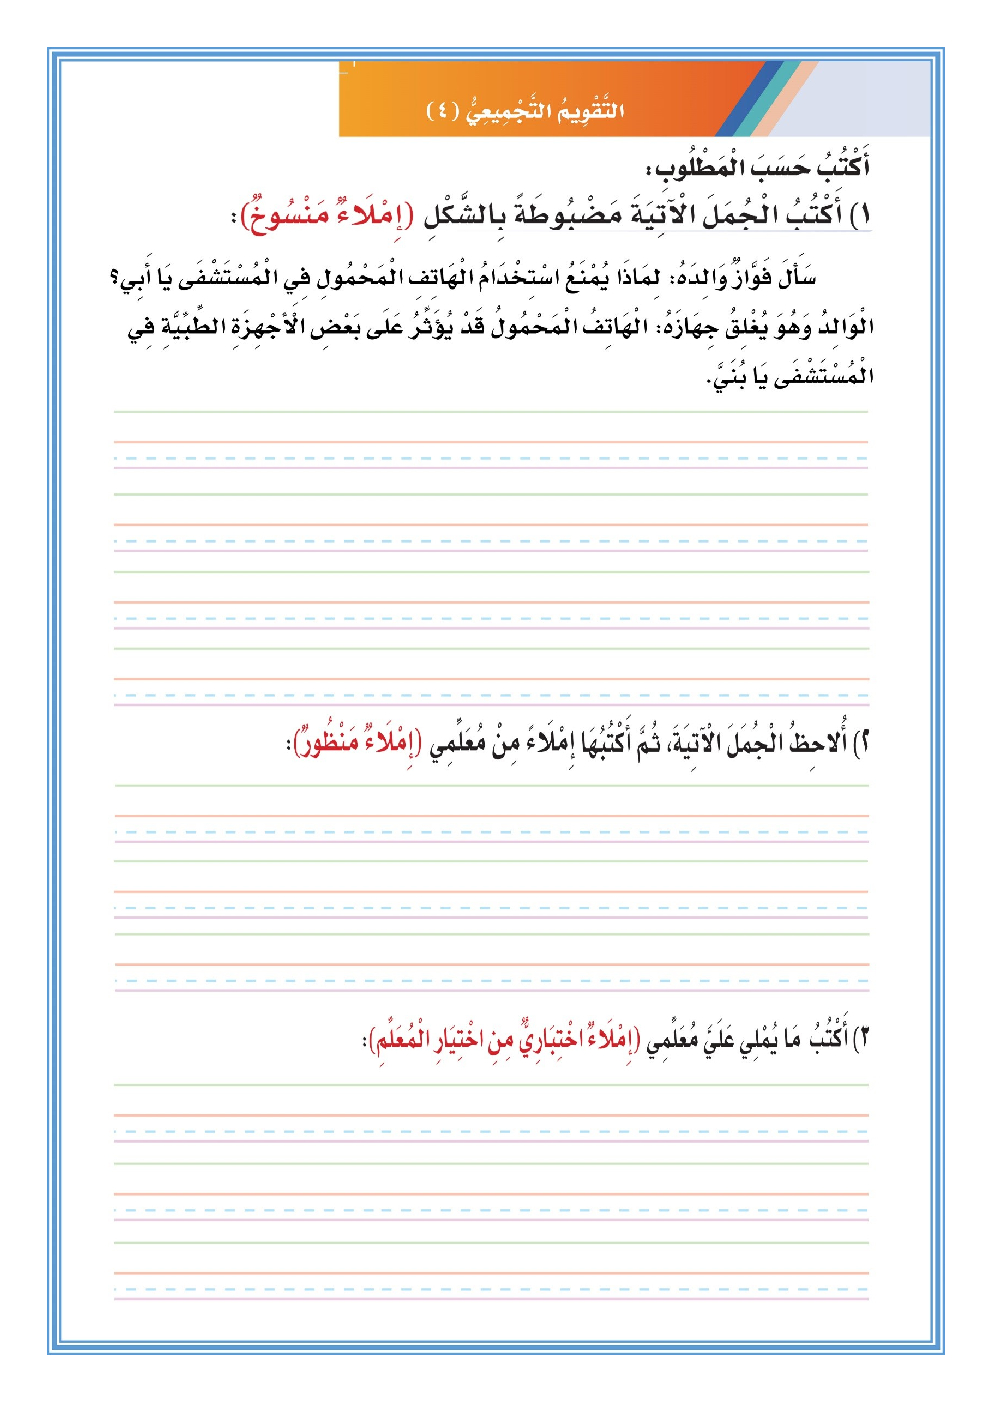 التَّقْوِيمُ التَّجْمِيعِيُّ (٤)
أَكْتُبُ حَسَبَ الْمَطْلُوبِ:
١) أَكْتُبُ الْجُمَلَ الْآتِيَةَ مَضْبُوطَةً بِالشَّكْلِ (إِمْلَاءٌ مَنْسُوخٌ):
سَأَلَ فَوَّازٌ وَالِدَهُ: لِمَاذَا يُمْنَعُ اسْتِخْدَامُ الْهَاتِفِ الْمَحْمُولِ فِي الْمُسْتَشْفَى يَا أَبِي؟
الْوَالِدُ وَهُوَ يُغْلِقُ جِهَازَهُ: الْهَاتِفُ الْمَحْمُولُ قَدْ يُؤَثِّرُ عَلَى بَعْضِ الْأَجْهِزَةِ الطِّبِّيَّةِ فِي
الْمُسْتَشْفَى يَا بُنَيَّ.
٢) أُلَاحِظُ الْجُمَلَ الْآتِيَةَ، ثُمَّ أَكْتُبُهَا إِمْلَاءً مِنْ مُعَلِّمِي (إِمْلَاءٌ مَنْظُورٌ):
٣) أَكْتُبُ مَا يُمْلِي عَلَيَّ مُعَلِّمِي (إِمْلَاءٌ اخْتِبَارِيٌّ مِنِ اخْتِيَارِ الْمُعَلِّمِ):